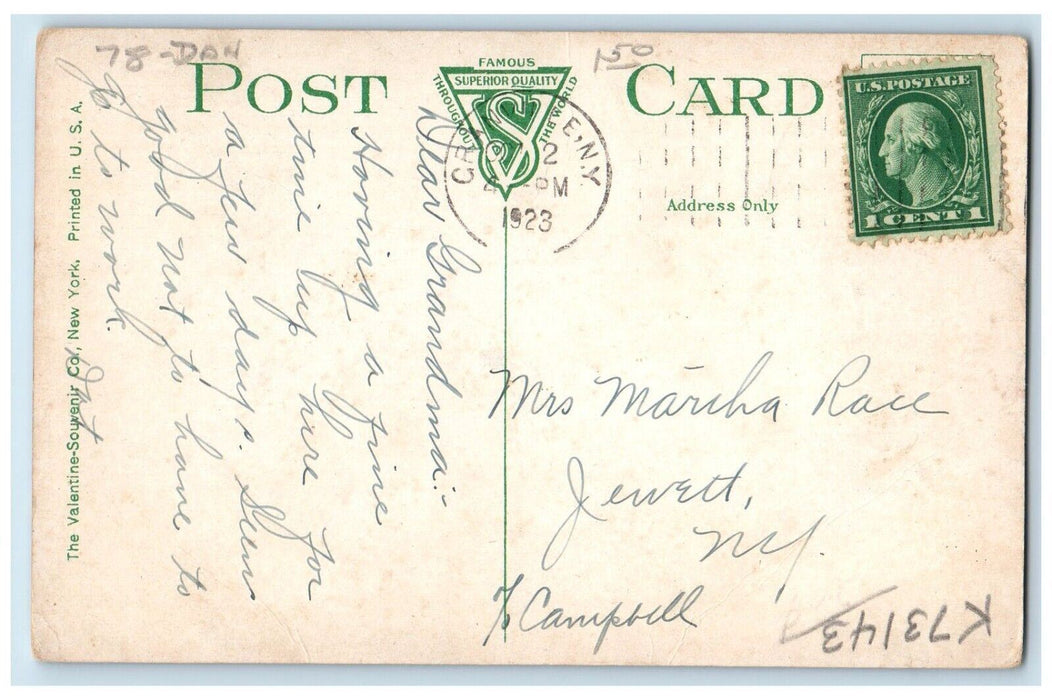 78-DAN
1.50
POST CARD
FAMOUS
SUPERIOR QUALITY
THROUGHOUT THE WORLD
VS
Co
U.S. POSTAGE
1 CENT 1
GRANVILLE, N.Y.
2
PM
1923
Address Only
Dear Grandma:-
Having a fine
time up here for
a few days. Seems
good not to have to
go to work.
Dot
Mrs Martha Race
Jewett,
N.Y.
% Campbell
K73143
The Valentine-Souvenir Co., New York. Printed in U. S. A.